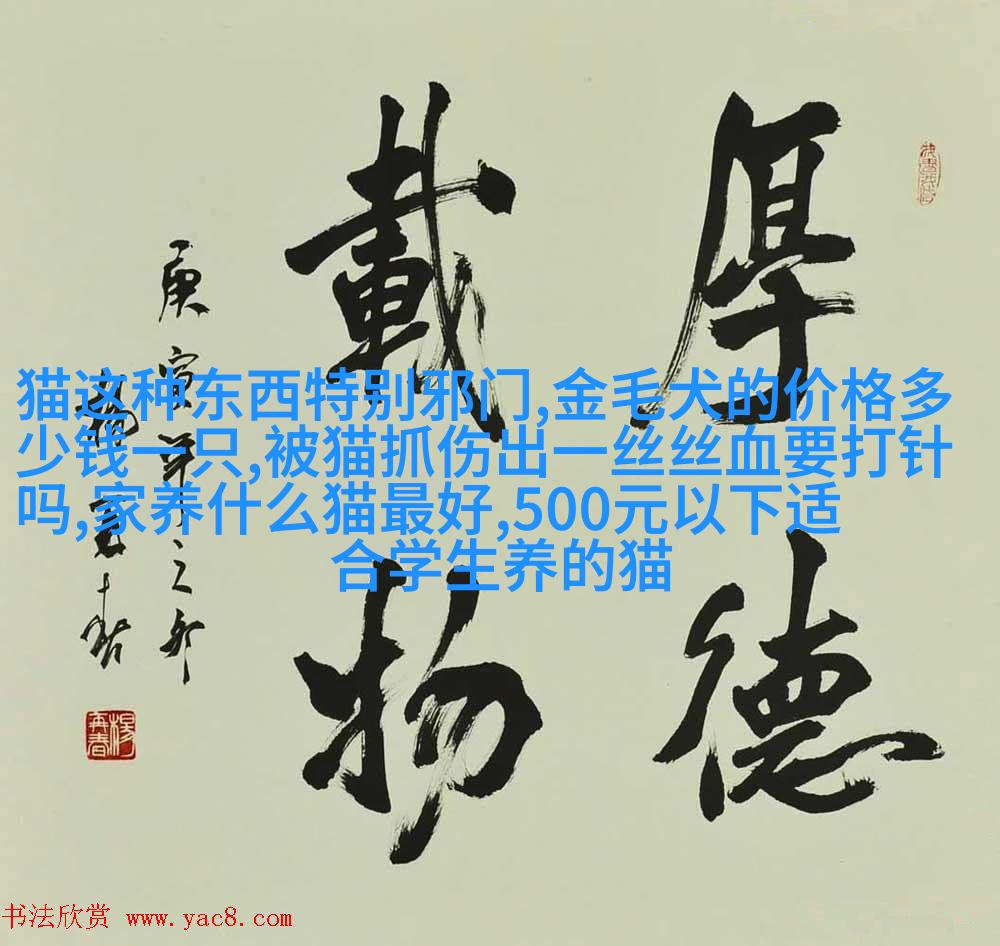 厚德
載物
庚寅年之卯
楊再春
楊再春
猫这种东西特别邪门,金毛犬的价格多
少钱一只,被猫抓伤出一丝丝血要打针
吗,家养什么猫最好,500元以下适
合学生养的猫
书法欣赏 www.yac8.com